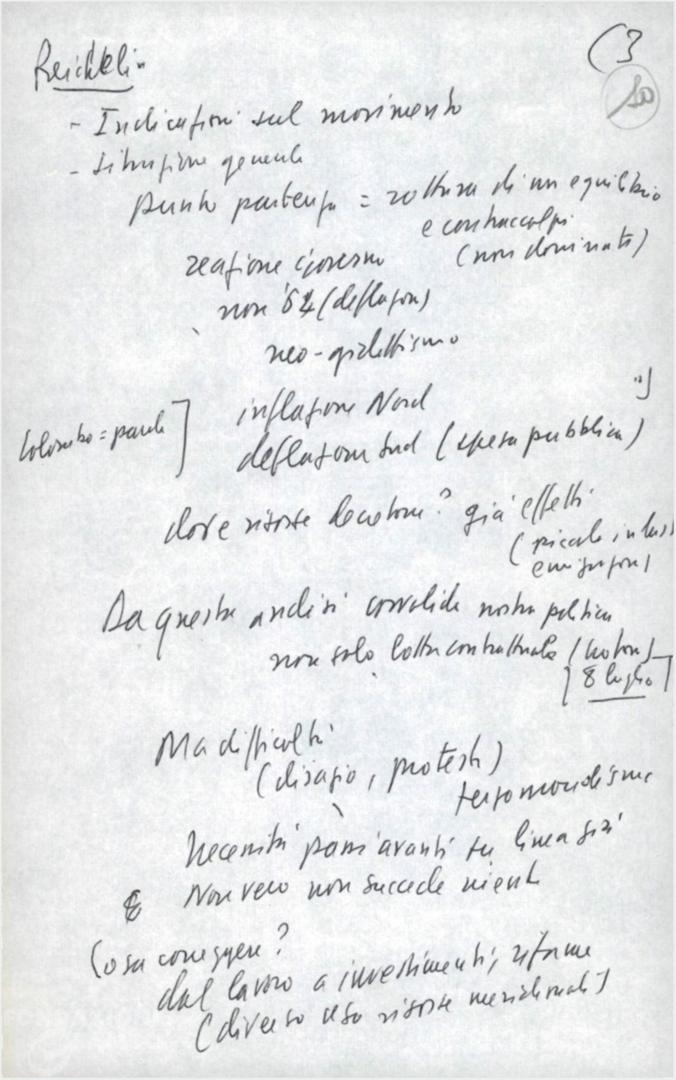 Reichlin
(3
10
- Indicazioni sul movimento
- Situazione generale
punto partenza = rottura di un equilibrio
e contraccolpi
(non dominati)
reazione governo
non '64 (deflazion)
neo-giolittismo
inflazione Nord
Colombo = parole ]
deflazione Sud (spesa pubblica)
dove risorse decotone? già effetti
(piccole indus
emigrazion)
Da questa analisi convalida nostra politica
non solo lotta contrattuale
8 luglio
Ma difficoltà
(disagio, protesta)
terzomondismo
Necessità passi avanti su linea già
Non vero non succede niente
Cosa correggere?
dal lavoro a investimenti, riforme
(diverso uso risorse meridionali)